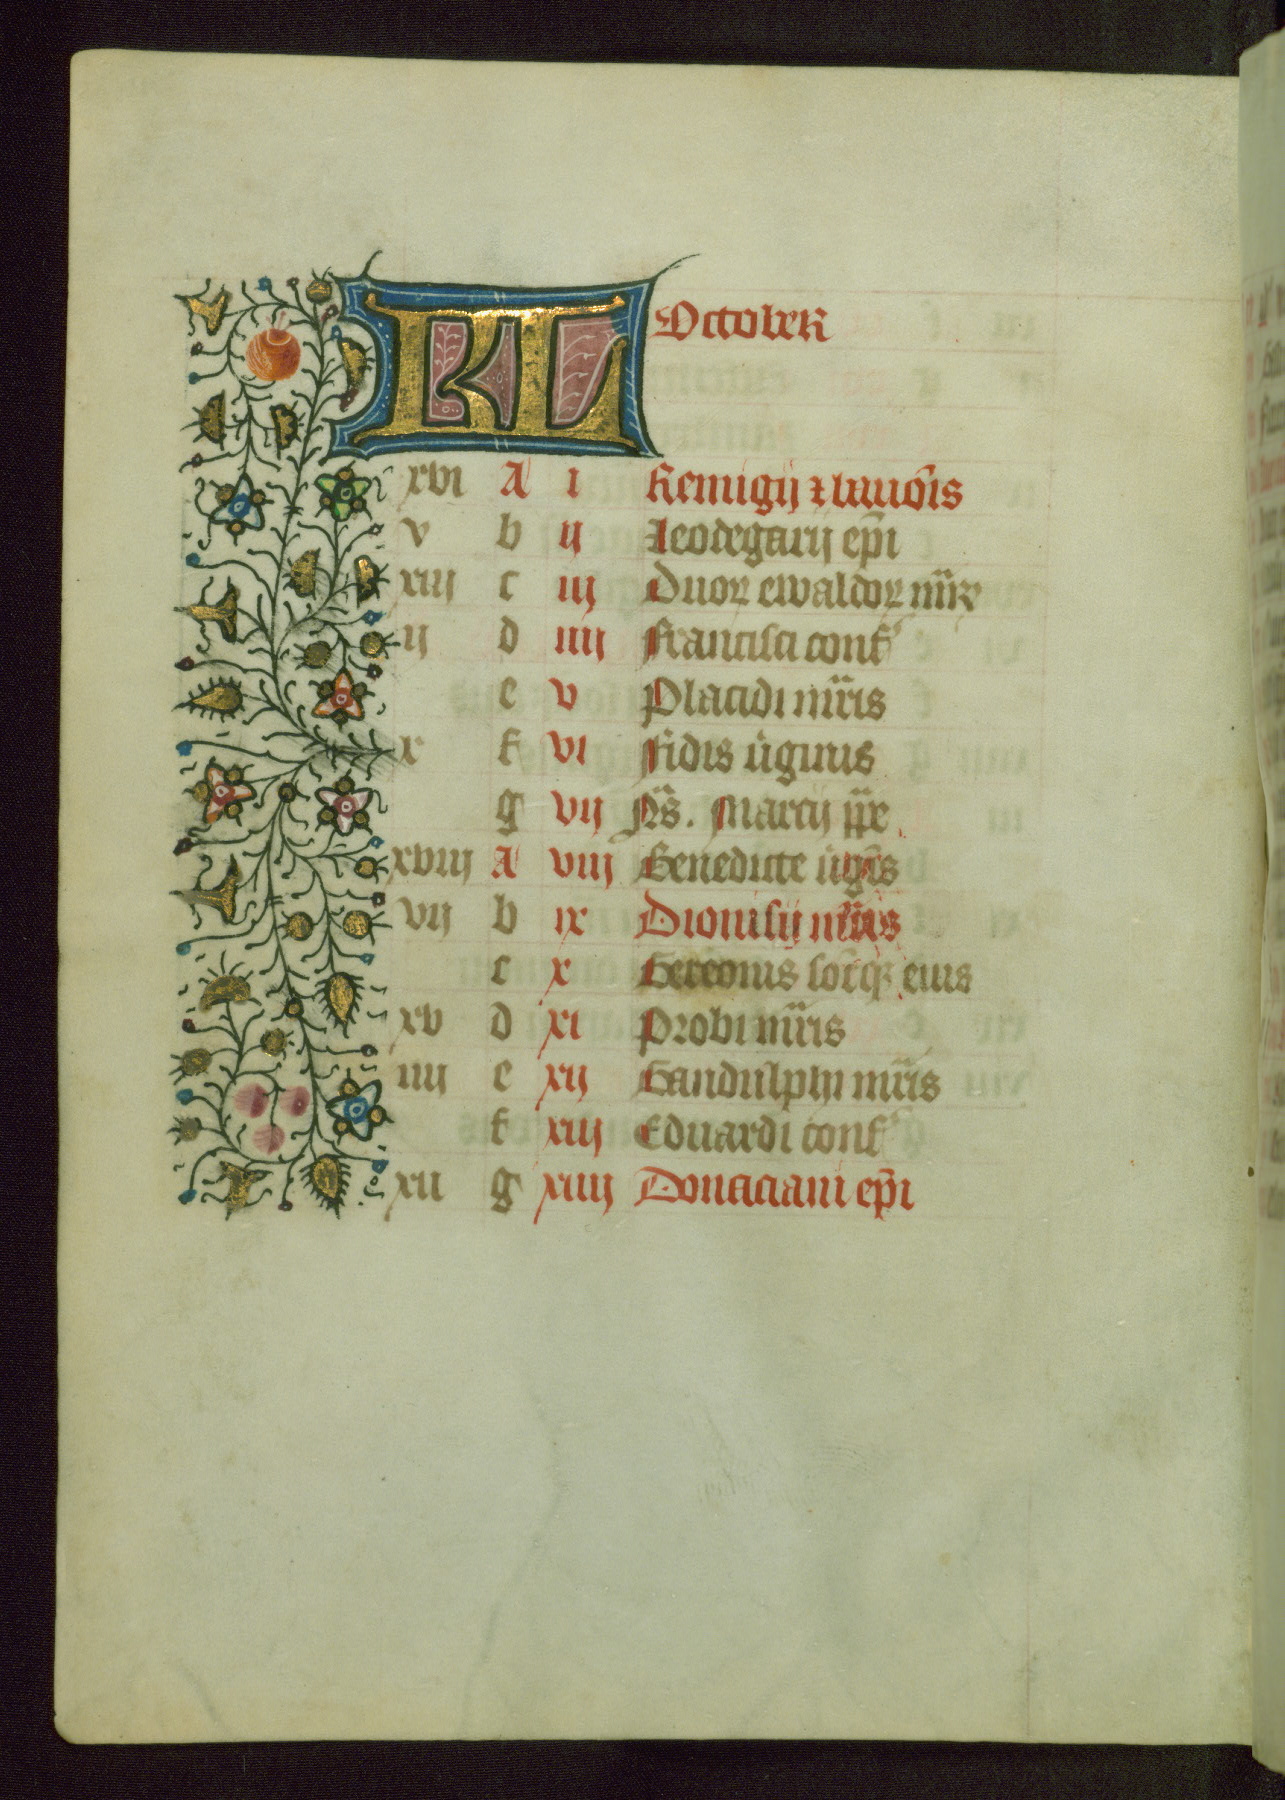 KL October
xvi A i Remigij ⁊ bauõis
v b ij Leodegarij ep̃i
xiij c iij Duoꝝ ewaldoꝝ mr̃ꝝ
ij d iiij Francisci conf̃
e v Placidi mr̃is
x f vi Fidis ũginis
g vij N̄s. Marcij pp̃e
xviij A viij Benedicte ũgĩs
vij b ix Dionisij mr̃is
c x Gereonis soc̃qꝫ eius
xv d xi Probi mr̃is
iiij e xij Gandulphi mr̃is
f xiij Eduardi conf̃
xii g xiiij Donaciani ep̃i